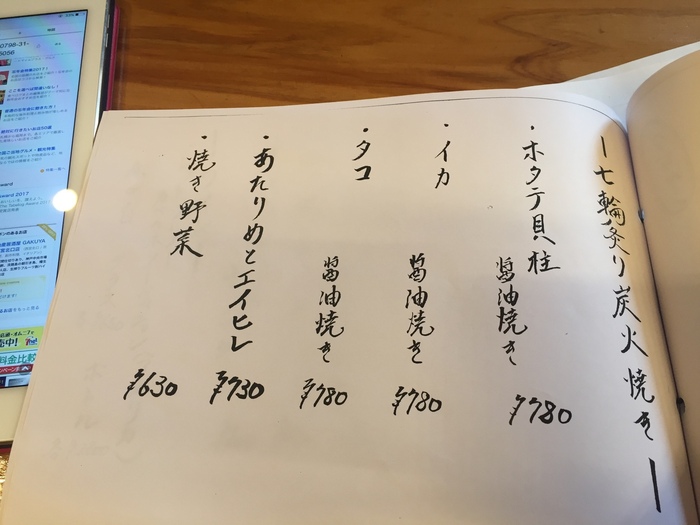 ー七輪炙り炭火焼きー
・ホタテ貝柱
醤油焼き
¥780
・イカ
醤油焼き
¥780
・タコ
醤油焼き
¥780
・あたりめとエイヒレ
¥730
・焼き野菜
¥630
0798-31-
5056
ward 2017
料金比較